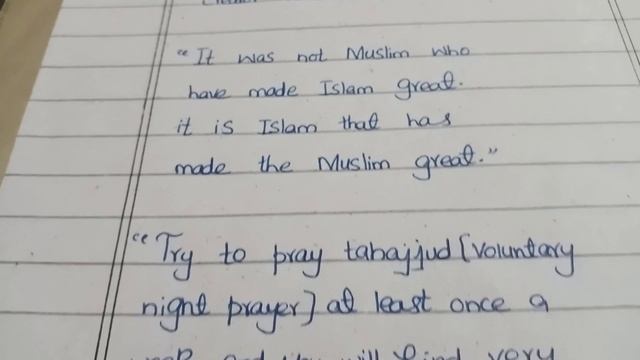 "It was not Muslim who
have made Islam great.
it is Islam that has
made the Muslim great."
"Try to pray tahajjud [voluntary
night prayer] at least once a
will find very